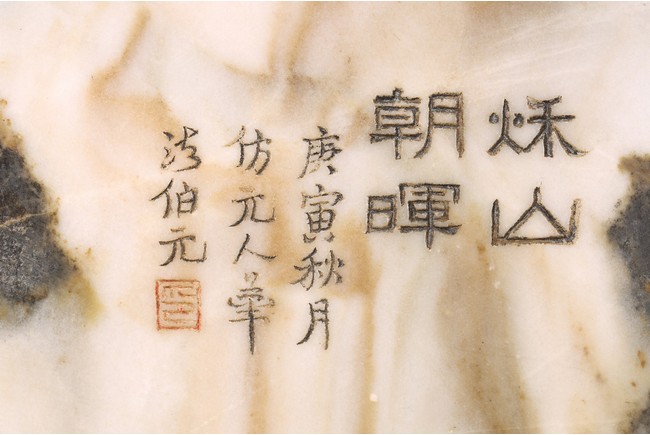 秌山
朝暉
庚寅秋月
仿元人筆
伯元